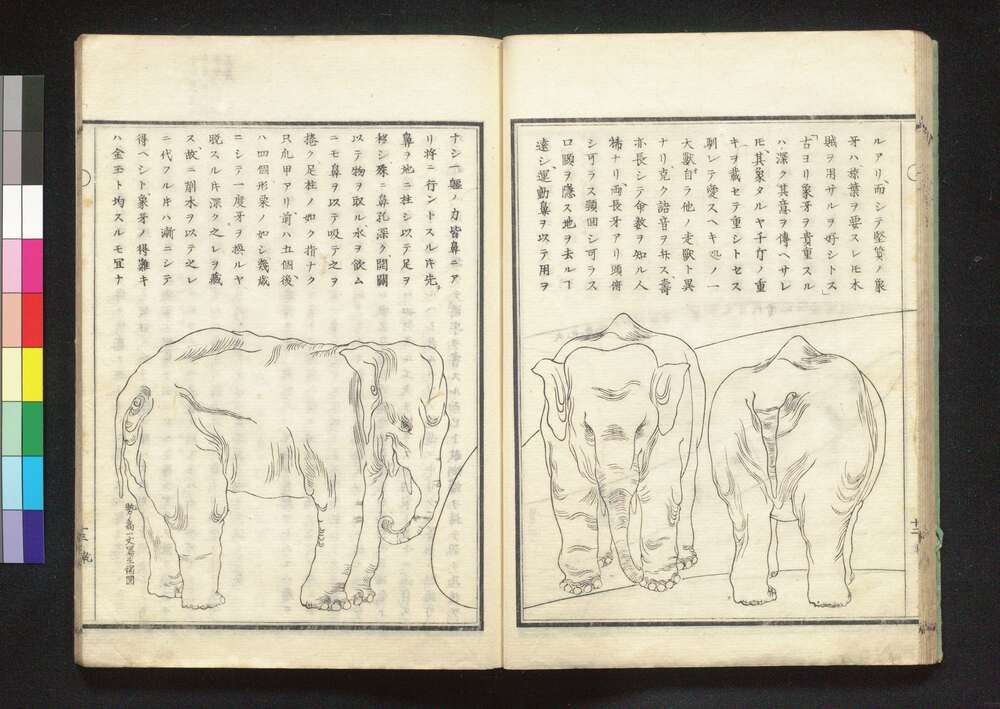 ルアリ而シテ堅質ノ象
牙ハ椋葉ヲ要スレモ木
賊ヲ用サルヲ好シトス」
古ヨリ象牙ヲ貴重スル
ハ深ク其意ヲ傳ヘサレ
𪜈其象タルヤ千斤ノ重
キヲ載セテ重シトセス
馴レテ愛スヘキ処ノ一
大獸自ラ他ノ走獸ト異
ナリ克ク諧音ヲ弁ス壽
亦長シテ命教ヲ知ル人
情ナリ両長牙アリ頭俯
シ可ラス頸回シ可ラス
口頤ヲ隱ス地ヲ去ルヿ
遠シ運動鼻ヲ以テ用ヲ
ナシ一軀ノ力皆鼻ニア
リ将ニ行ントスル𪜈先
鼻ヲ地ニ柱シ以テ足ヲ
移シ殊ニ鼻孔深ク開闔
以テ物ヲ取ル水ヲ飲ム
ニモ鼻ヲ以テ吸テ之ヲ
捲ク足柱ノ如ク指ナク
只爪甲アリ前ハ五個後
ハ四個形栗ノ如シ幾歳
ニシテ一度牙ヲ換ルヤ
脱スル𪜈深ク之レヲ藏
ス故ニ削木ヲ以テ之レ
ニ代フル𪜈ハ漸ニシテ
得ヘシト象牙ノ得難キ
ハ金玉ト均スルモ冝ナ
十二
十三